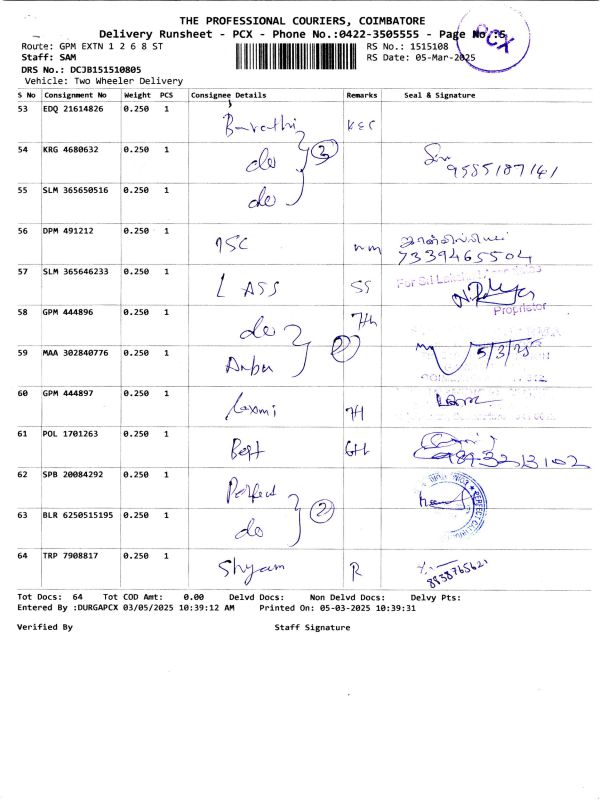 THE PROFESSIONAL COURIERS, COIMBATORE
Delivery Runsheet - PCX - Phone No.:0422-3505555 - Page No.:5
PCX
Route: GPM EXTN 1 2 6 8 ST
RS No.: 1515108
Staff: SAM
RS Date: 05-Mar-2025
DRS No.: DCJB151510805
Vehicle: Two Wheeler Delivery
S No Consignment No Weight PCS Consignee Details Remarks Seal & Signature
53 EDQ 21614826 0.250 1
KEC
54 KRG 4680632 0.250 1 do 3
9585187141
55 SLM 365650516 0.250 1 do
56 DPM 491212 0.250 1
7339465504
57 SLM 365646233 0.250 1 LASS SS
For Sri
Proprietor
58 GPM 444896 0.250 1 do 7th
59 MAA 302840776 0.250 1 Anbu 2 5/3/25
60 GPM 444897 0.250 1 Laxmi 7H
61 POL 1701263 0.250 1
62 SPB 20084292 0.250 1 Perfect
63 BLR 6250515195 0.250 1 do 2
64 TRP 7908817 0.250 1 Shyam R
8838765621
Tot Docs: 64 Tot COD Amt: 0.00 Delvd Docs: Non Delvd Docs: Delvy Pts:
Entered By :DURGAPCX 03/05/2025 10:39:12 AM Printed On: 05-03-2025 10:39:31
Verified By Staff Signature